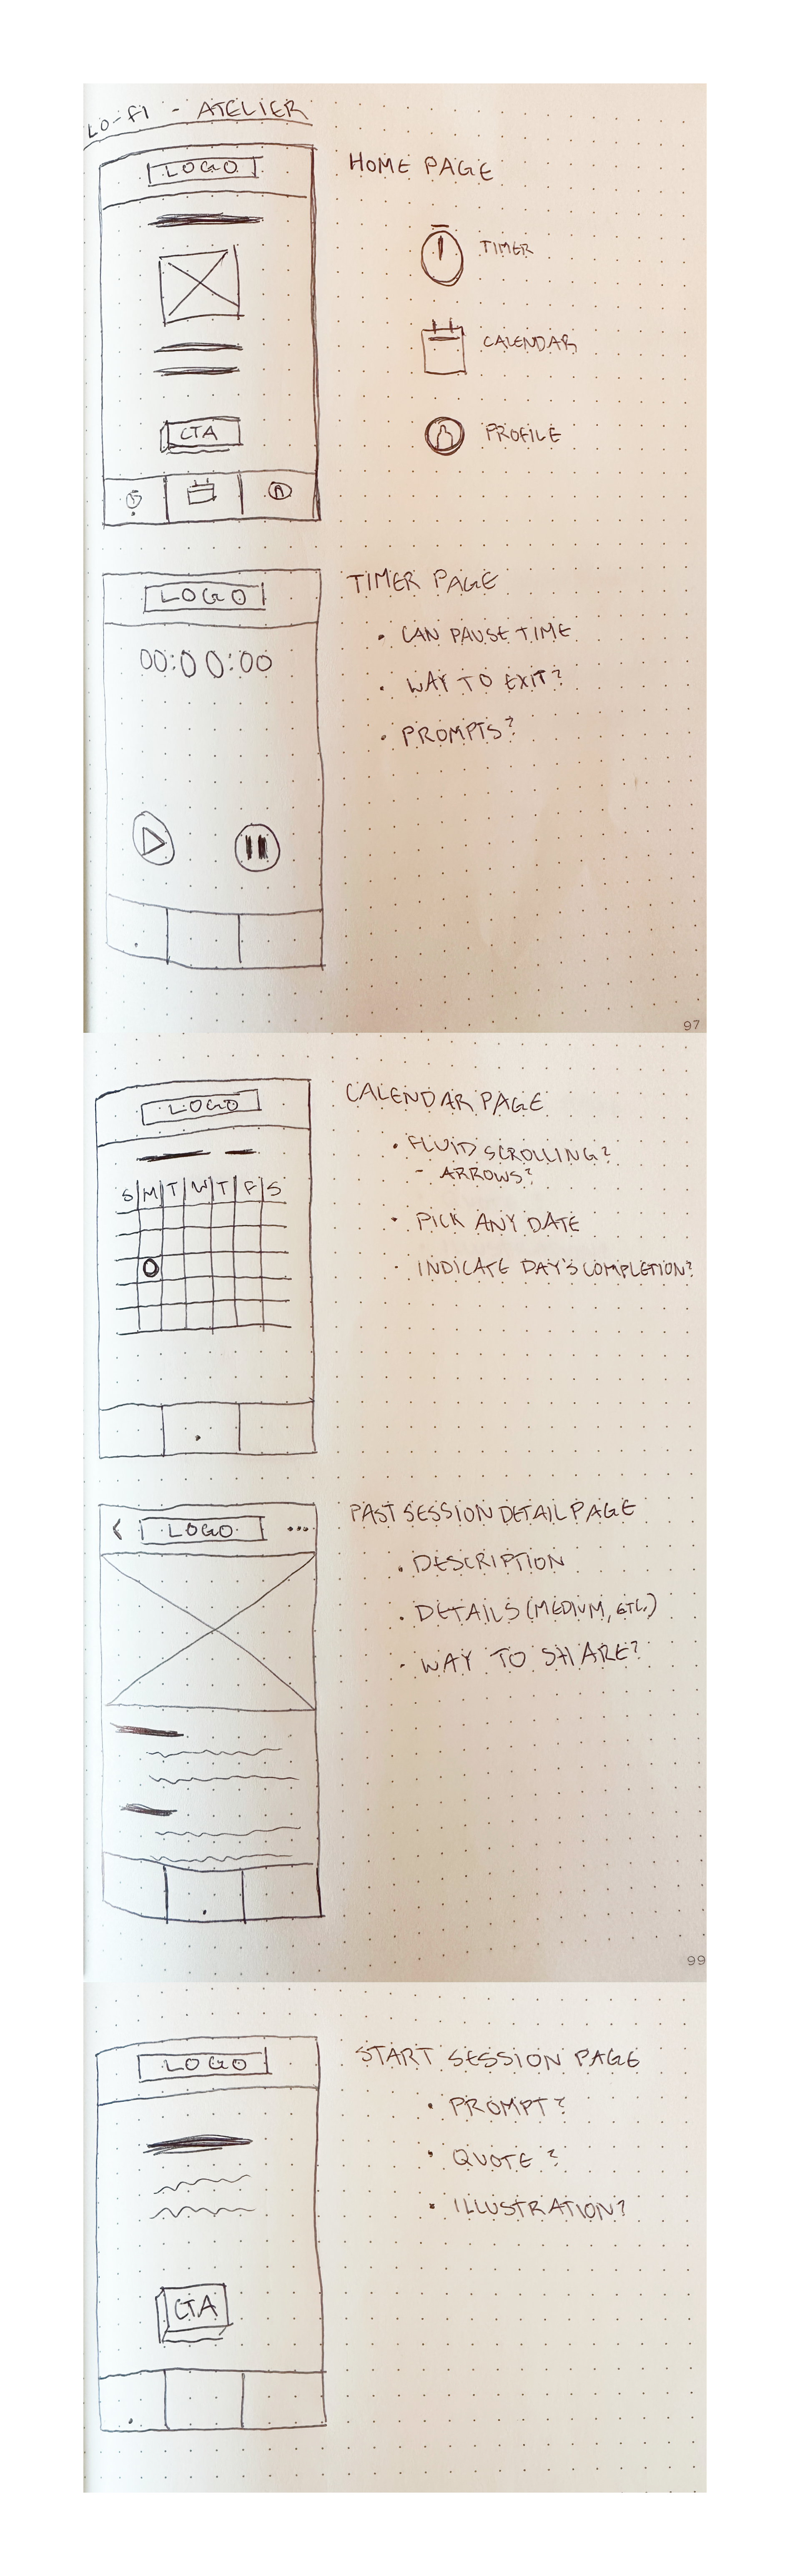 LO-FI - ATELIER
LOGO
HOME PAGE
TIMER
CALENDAR
CTA
PROFILE
LOGO
TIMER PAGE
00:00:00
• CAN PAUSE TIME
• WAY TO EXIT?
• PROMPTS?
97
LOGO
CALENDAR PAGE
• FLUID SCROLLING?
- ARROWS?
S M T W T F S
• PICK ANY DATE
• INDICATE DAY'S COMPLETION?
< LOGO ...
PAST SESSION DETAIL PAGE
• DESCRIPTION
• DETAILS (MEDIUM, ETC.)
• WAY TO SHARE?
99
LOGO
START SESSION PAGE
• PROMPT?
• QUOTE?
• ILLUSTRATION?
CTA